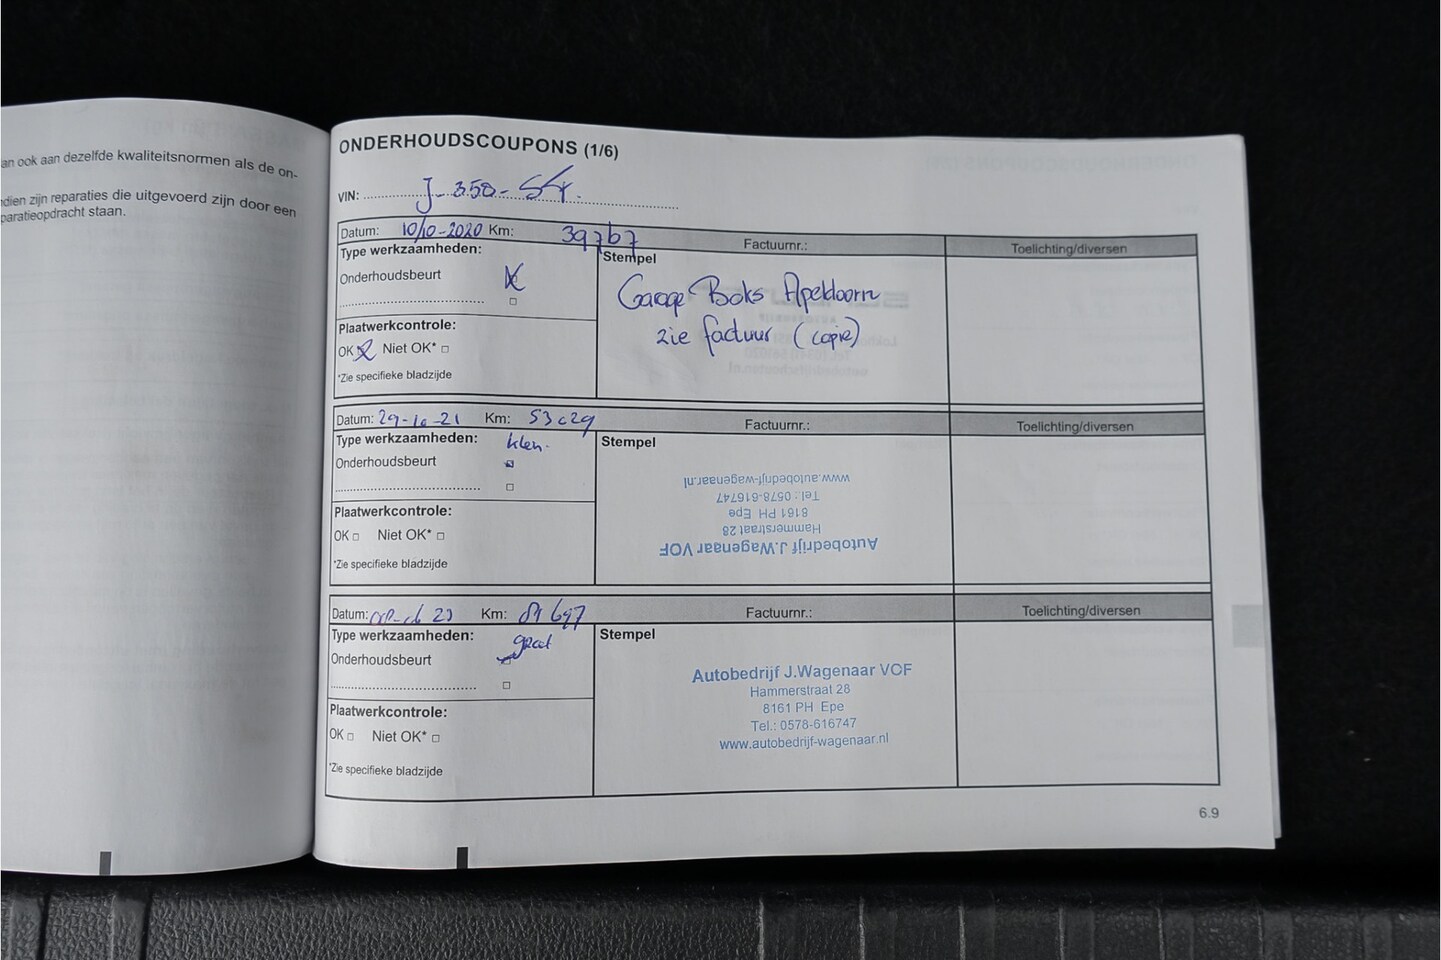 an ook aan dezelfde kwaliteitsnormen als de on-
dien zijn reparaties die uitgevoerd zijn door een
paratieopdracht staan.
ONDERHOUDSCOUPONS (1/6)
VIN: J-350-SX.
Datum: 10/10-2020 Km: 39767 Factuurnr.: Toelichting/diversen
Type werkzaamheden: Stempel
Onderhoudsbeurt
Garage Boks Apeldoorn
zie factuur (copie)
Plaatwerkcontrole:
OK Niet OK*
*Zie specifieke bladzijde
Datum: 29-10-21 Km: 53029 Factuurnr.: Toelichting/diversen
Type werkzaamheden: klein. Stempel
Onderhoudsbeurt
Autobedrijf J.Wagenaar VOF
Hammerstraat 28
8161 PH Epe
Tel.: 0578-616747
www.autobedrijf-wagenaar.nl
Plaatwerkcontrole:
OK Niet OK*
*Zie specifieke bladzijde
Datum: 23 Km: Factuurnr.: Toelichting/diversen
Type werkzaamheden: groot Stempel
Onderhoudsbeurt
Autobedrijf J.Wagenaar VOF
Hammerstraat 28
8161 PH Epe
Tel.: 0578-616747
www.autobedrijf-wagenaar.nl
Plaatwerkcontrole:
OK Niet OK*
*Zie specifieke bladzijde
6.9